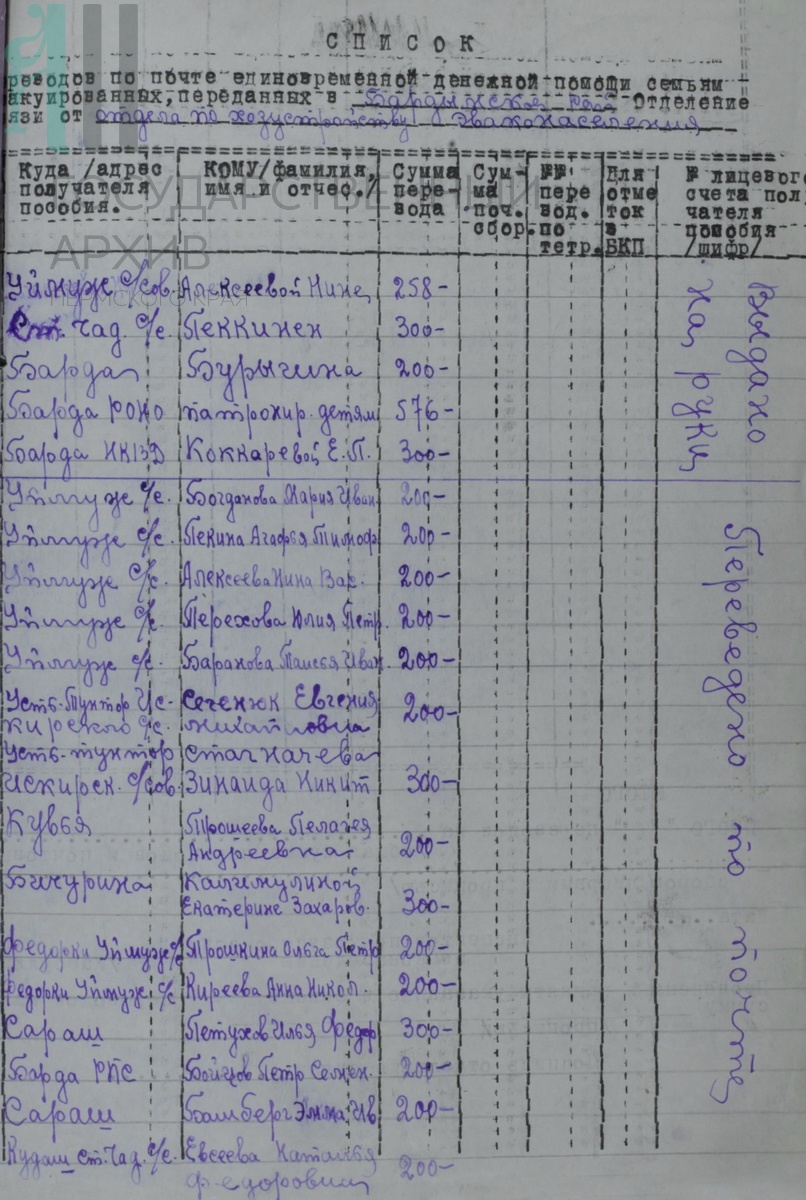 СПИСОК
реводов по почте единовременной денежной помощи семьям
акуированных, переданных в Бардымское рай Отделение
язи от отдела по хозустройству эваконаселения
Куда /адрес получателя пособия. КОМУ/фамилия, имя и отчес./ Сумма перевода Сумма поч. сбор. №№ перевод. по тетр. Для отметок в БКП № лицевого счета получателя пособия /шифр/
ГОСУДАРСТВЕННЫЙ
АРХИВ
ПЕРМСКОГО КРАЯ
Уймуже с/сов. Алексеевой Нине 258-
Ст. Чад. с/с. Пеккинен 300-
Барда Бурычина 200-
Барда РОНО патронир. детям 576-
Барда НКВД Коккаревой Е.П. 300-
Выдано на руки
Уймуже с/с. Богданова Мария Иван 200-
Уймуже с/с. Пекина Агафья Тимоф 200-
Уймуже с/с. Алексеева Нина Вас. 200-
Уймуже с/с. Перехова Юлия Петр. 200-
Уймуже с/с. Баранова Таисья Иван. 200-
Усть-Тунтор Ис-кирского с/с. Сеченюк Евгения Михайловна 200-
Усть-тунтор Искирск. с/сов. Стагначева Зинаида Никит 300-
Кувья Прошеева Пелагея Андреевна 200-
Бичурина Калимулиной Екатерине Захаров. 300-
Федорки Уймуже с/с Трошкина Ольга Петр 200-
Федорки Уймуже с/с Киреева Анна Никол. 200-
Сараш Петухов Илья Федор 300-
Барда РПС Бойцов Петр Семен. 200-
Сараш Бамберг Эмма Ив 200-
Кудаш Ст. Чад. с/с. Евсеева Наталья Федоровна 200-
Переведено по почте